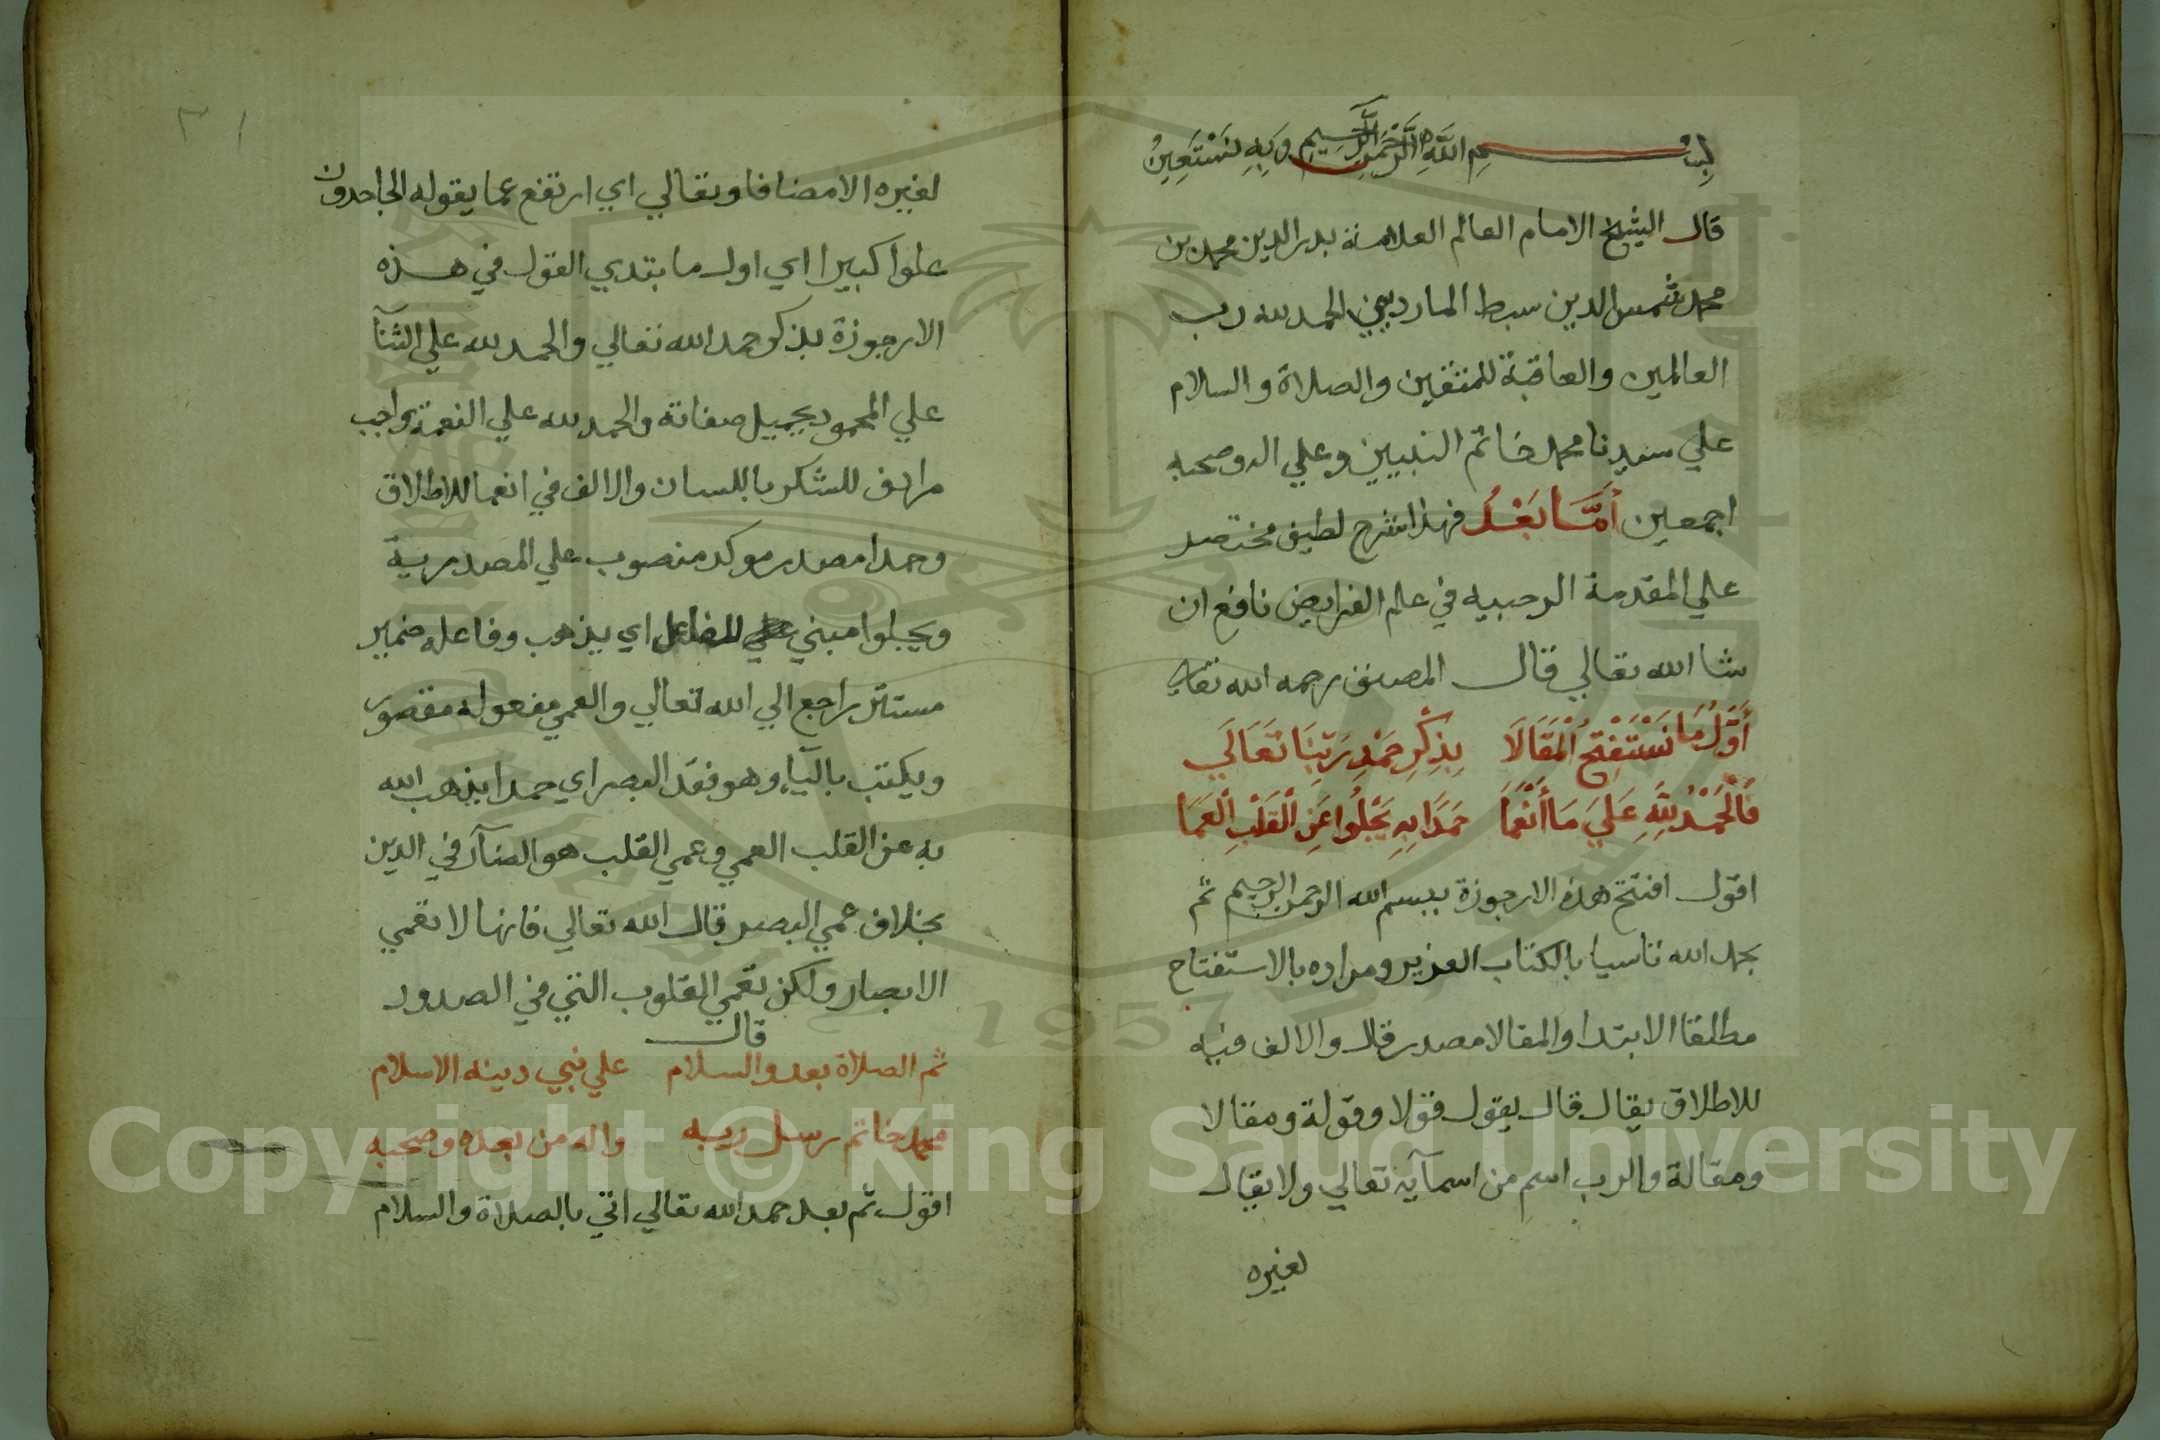 بسم الله الرحمن الرحيم وبه نستعين
قال الشيخ الامام العالم العلامة بدر الدين محمد بن
محمد شمس الدين سبط المارديني الحمد لله رب
العالمين والعاقبة للمتقين والصلاة والسلام
علي سيدنا محمد خاتم النبيين وعلي اله وصحبه
اجمعين أمَّا بَعْدُ فهذا شرح لطيف مختصر
علي المقدمة الرحبيه في علم الفرايض نافع ان
شا الله تعالي قال المصنف رحمه الله تعالي
أَوَّلُ مَا نَسْتَفْتِحُ الْمَقَالَا بِذِكْرِ حَمْدِ رَبِّنَا تَعَالَي
فَالْحَمْدُ لِلَّهِ عَلَي مَا أَنْعَمَا حَمْدًا بِهِ يَجْلُوا عَنِ الْقَلْبِ الْعَمَا
اقول افتتح هذه الارجوزة ببسم الله الرحمن الرحيم ثم
بحمد الله تاسيا بالكتاب العزيز ومراده بالاستفتاح
مطلقا الابتدا والمقالا مصدر قال والالف فيه
للاطلاق يقال قال يقول قولا وقولة ومقالا
ومقالة والرب اسم من اسمآيه تعالي ولا يقال
لغيره
٣١
لغيره الا مضافا وتعالي اي ارتفع عما يقوله الجاحدون
علوا كبيرا اي اول ما ابتدي القول في هذه
الارجوزة بذكر حمد الله تعالي والحمد لله علي الثنآ
علي المحمود بجميل صفاته والحمد لله علي النعمة واجب
مرادف للشكر باللسان والالف في انعما للاطلاق
وحمدا مصدر موكد منصوب علي المصدرية
ويجلوا مبني للفاعل اي يذهب وفاعله ضمير
مستتر راجع الي الله تعالي والعمي مفعوله مقصور
ويكتب باليآء وهو فقد البصر اي حمدا يذهب الله
به عن القلب العمي وعمي القلب هو الضلال في الدين
بخلاف عمي البصر قال الله تعالي فانها لا تعمي
الابصار ولكن تعمي القلوب التي في الصدور
قال
ثم الصلاة بعد والسلام علي نبي دينه الاسلام
محمد خاتم رسل ربه واله من بعده وصحبه
اقول ثم بعد حمد الله تعالي اتي بالصلاة والسلام
1957
Copyright © King Saud University